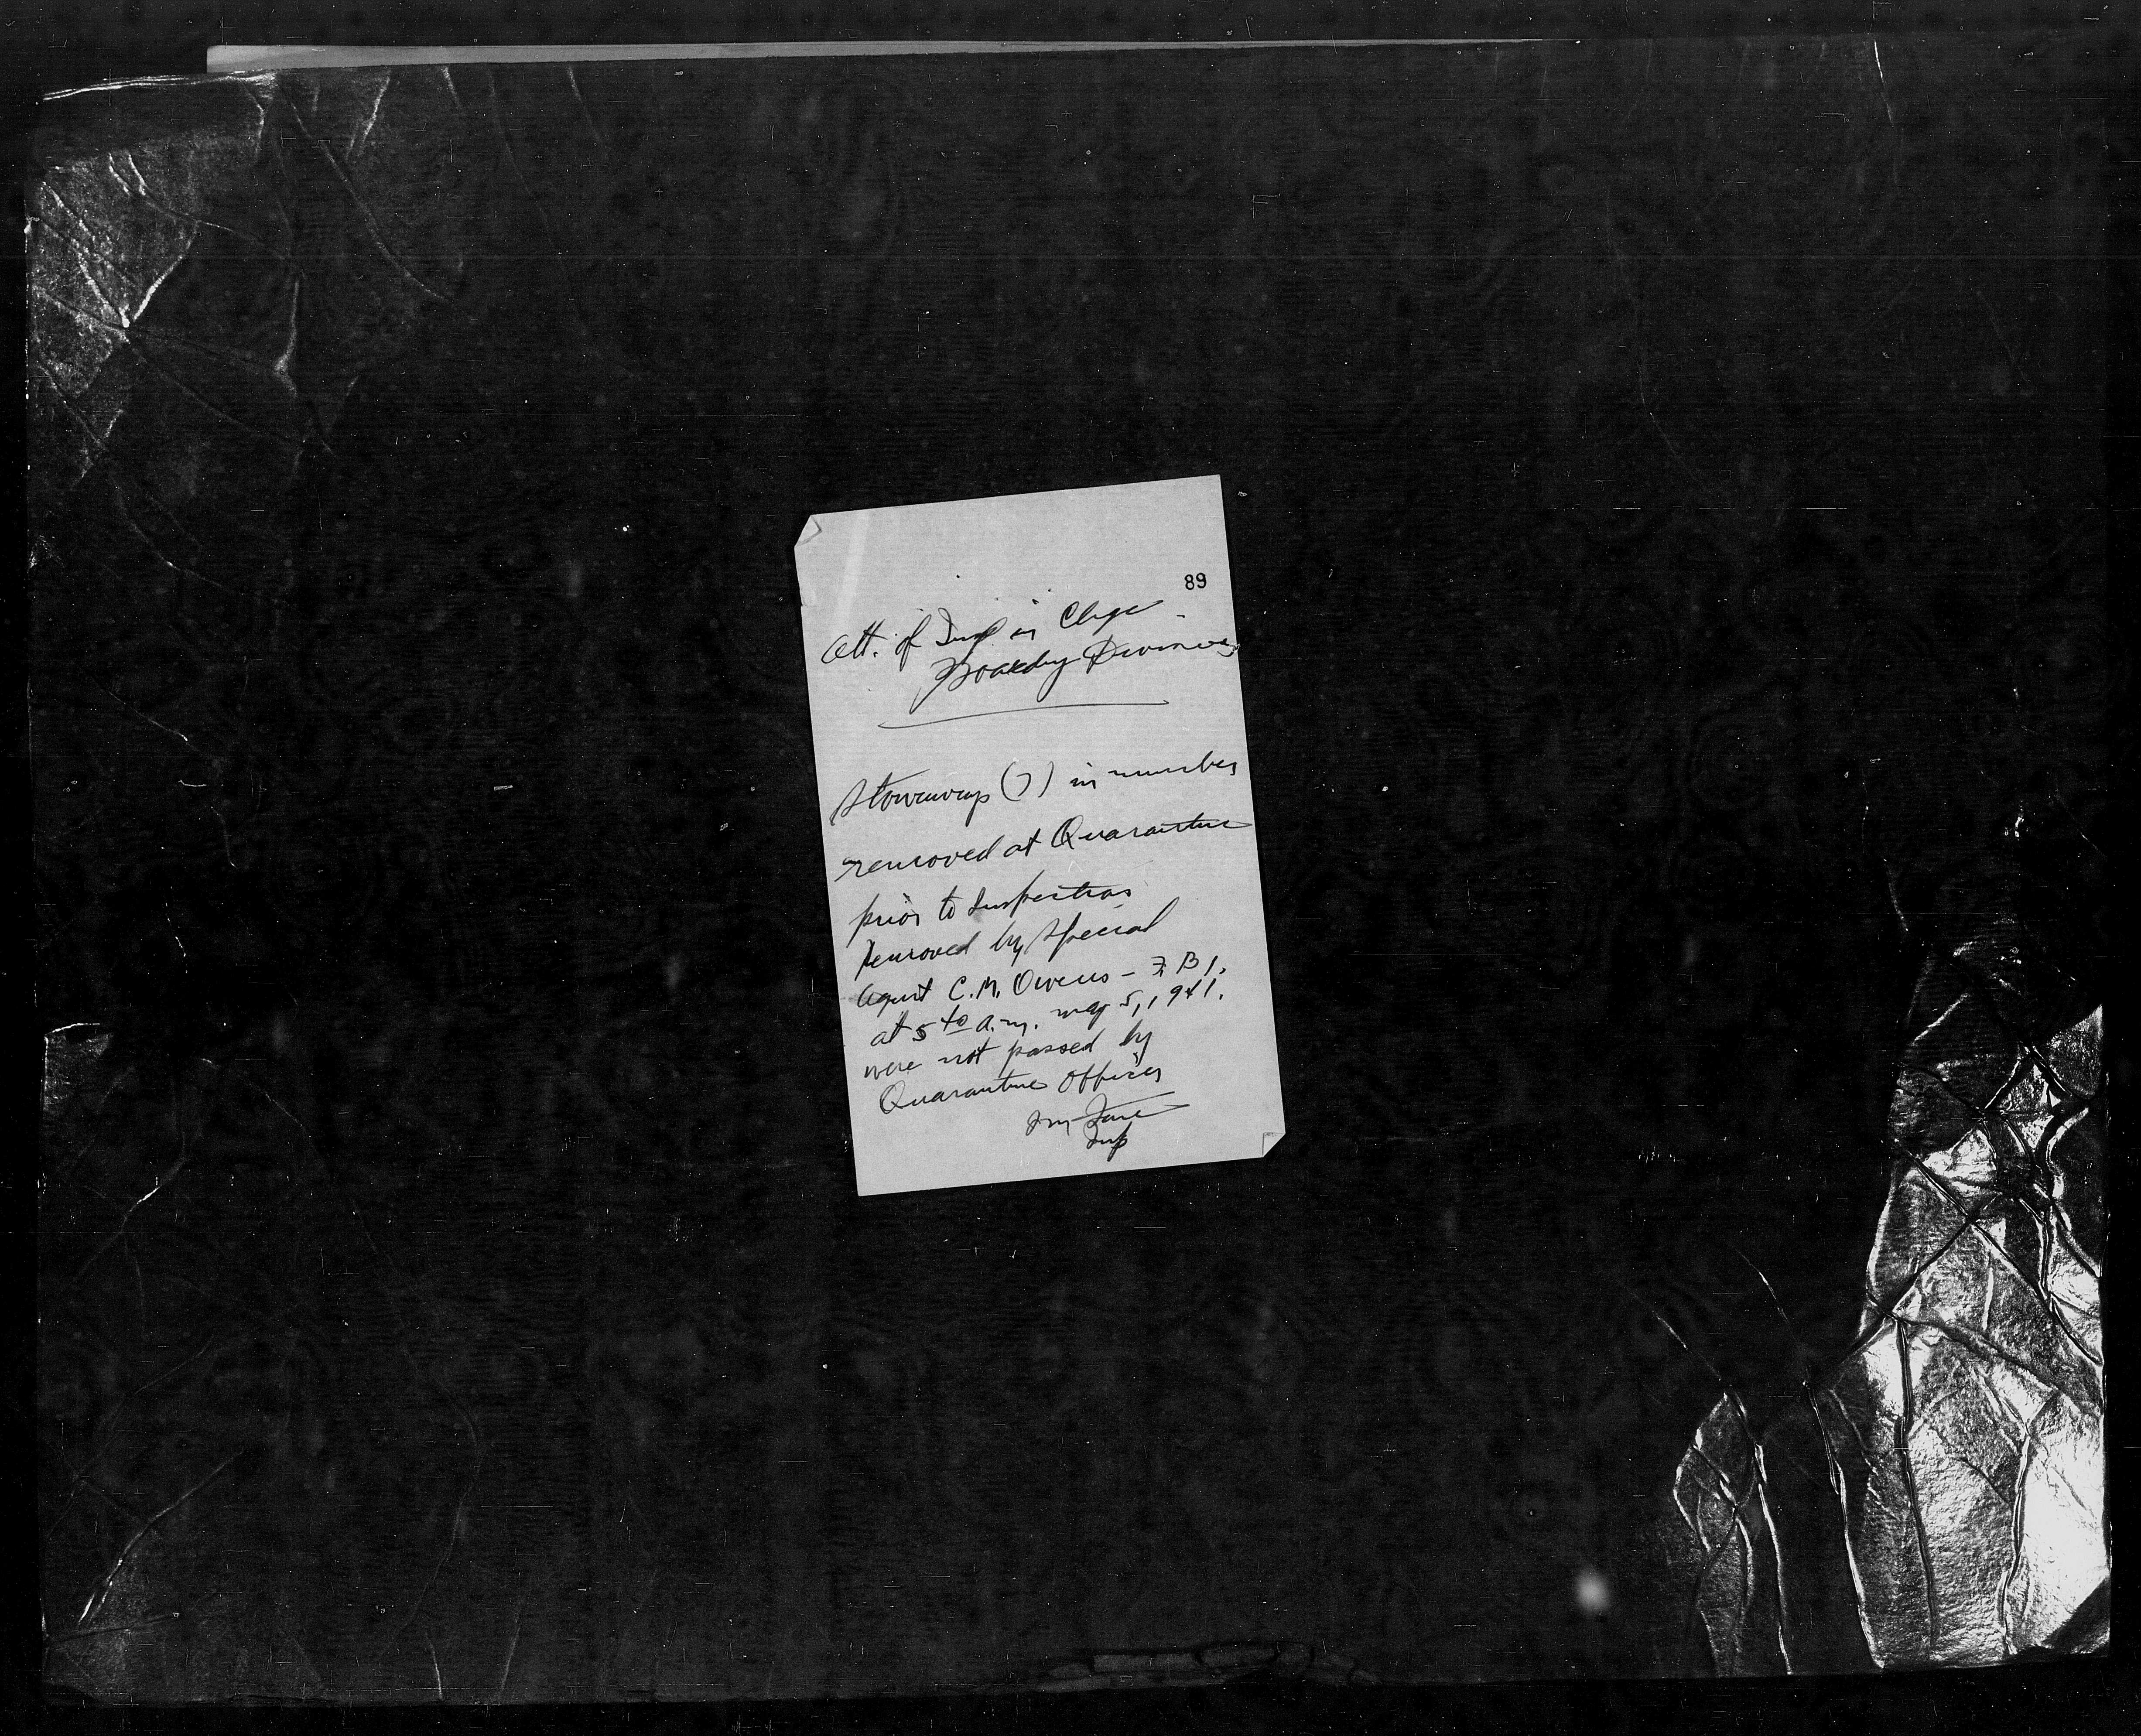 89
Att. of Insp in Chge
Boarding Division
Stowaways (7) in number
removed at Quarantine
prior to Inspection
removed by Special
Agent C.M. Owens - FBI.
at 5 40 a.m. May 5, 1941.
were not passed by
Quarantine Officer
Insp